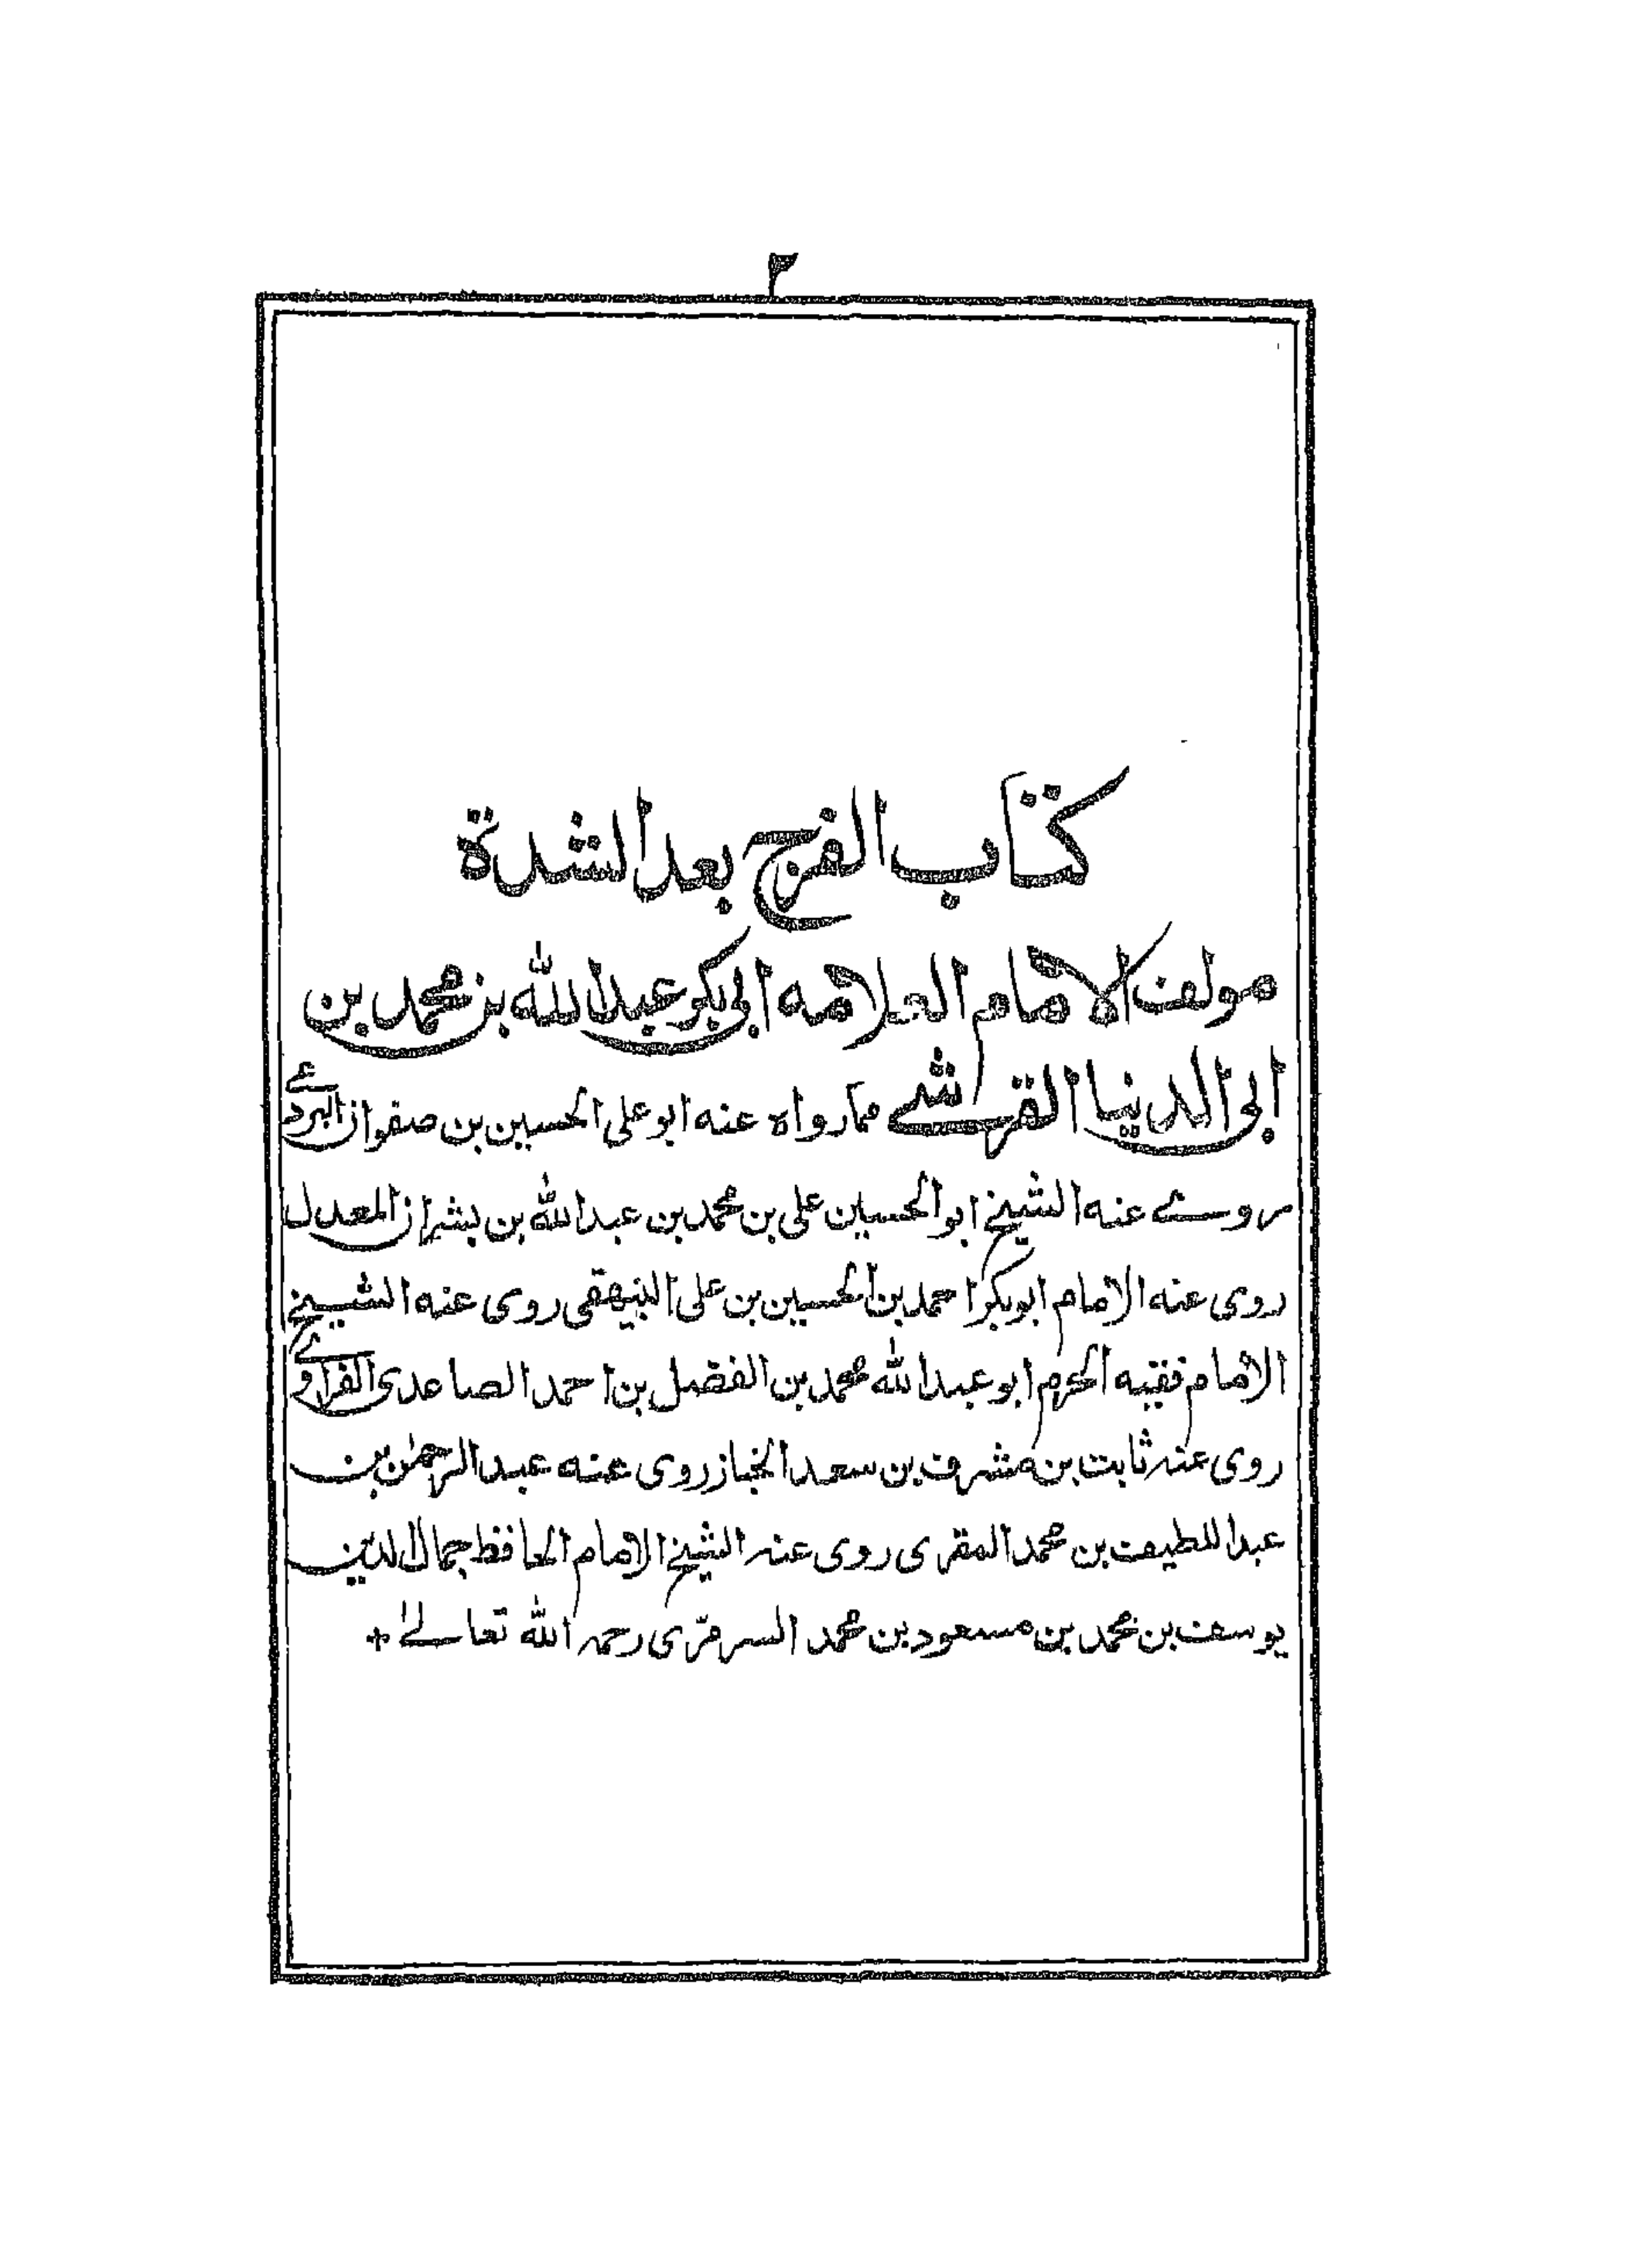 ٢
كتاب الفرج بعد الشدة
مولف الامام العلامه ابى بكر عبد الله بن محمد بن
ابى الدنيا القرشے مما رواه عنه ابو على الحسين بن صفوان البردعے
روے عنه الشيخ ابو الحسين على بن محمد بن عبد الله بن بشران المعدل
روى عنه الامام ابو بكر احمد بن الحسين بن على البيهقى روى عنه الشيخ
الامام فقيه الحرم ابو عبد الله محمد بن الفضل بن احمد الصاعدى الفراوے
روى عنه ثابت بن مشرف بن سعد الخباز روى عنه عبد الرحمٰن بن
عبد اللطيف بن محمد المقرى روى عنه الشيخ الامام الحافظ جمال الدين
يوسف بن محمد بن مسعود بن محمد السرمرّى رحمه الله تعالےٰ +